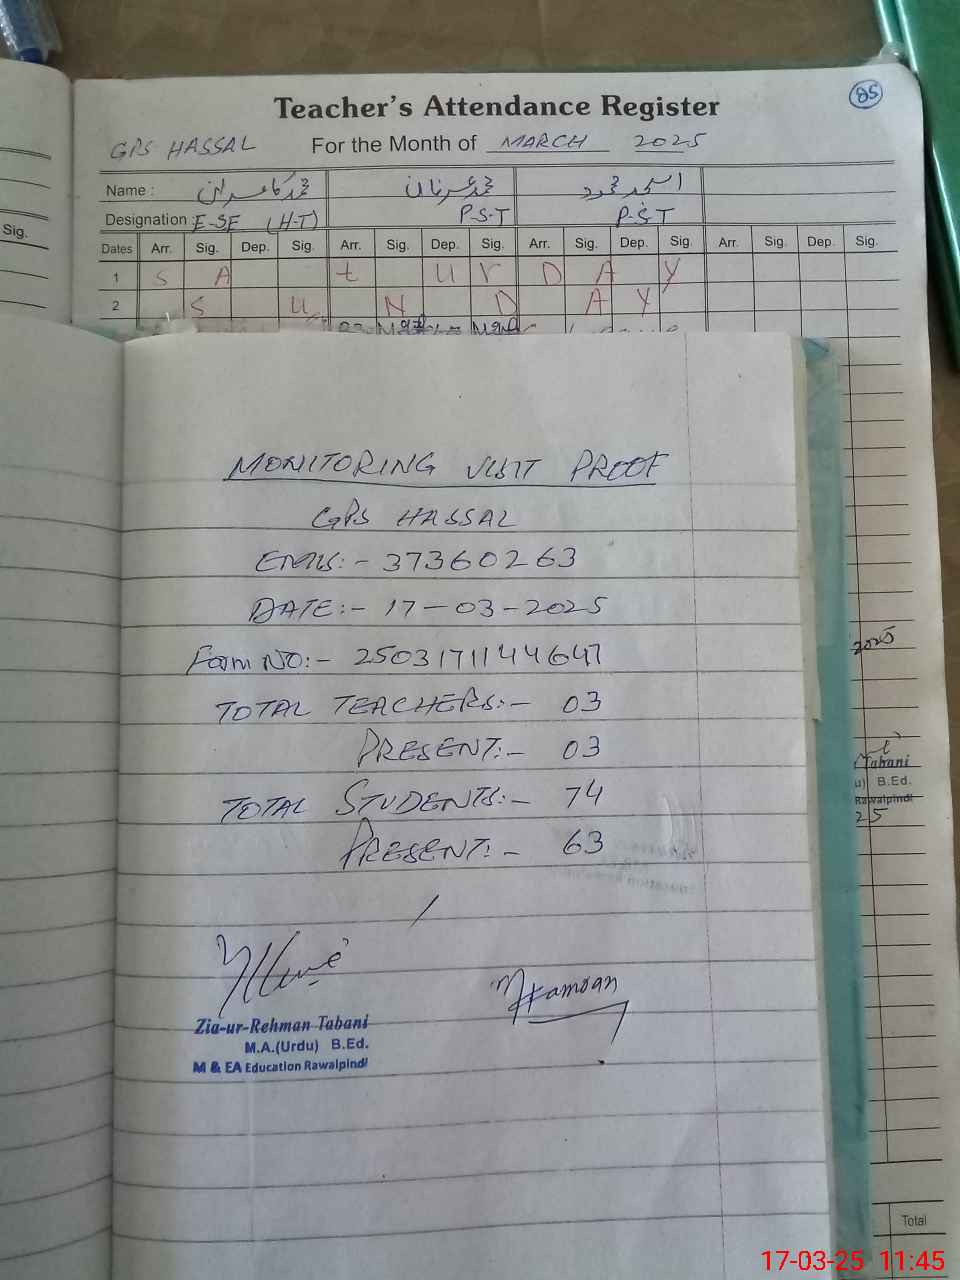 85
Teacher's Attendance Register
GPS HASSAL For the Month of MARCH 2025
Name : محمد کامران محمد عرفان اسجد محمود
Designation : E-SE (H-T) P-S-T P-S-T
Sig.
Dates Arr. Sig. Dep. Sig. Arr. Sig. Dep. Sig. Arr. Sig. Dep. Sig. Arr. Sig. Dep. Sig.
1 S A t U r D A Y
2 S U N D A Y
MONITORING VISIT PROOF
GPS HASSAL
EMIS:- 37360263
DATE:- 17-03-2025
Form NO:- 2503171144647
2025
TOTAL TEACHERS:- 03
PRESENT:- 03
Tabani
u) B.Ed.
Rawalpindi
25
TOTAL STUDENTS:- 74
PRESENT:- 63
Mkamran
Zia-ur-Rehman Tabani
M.A.(Urdu) B.Ed.
M & EA Education Rawalpindi
Total
17-03-25 11:45